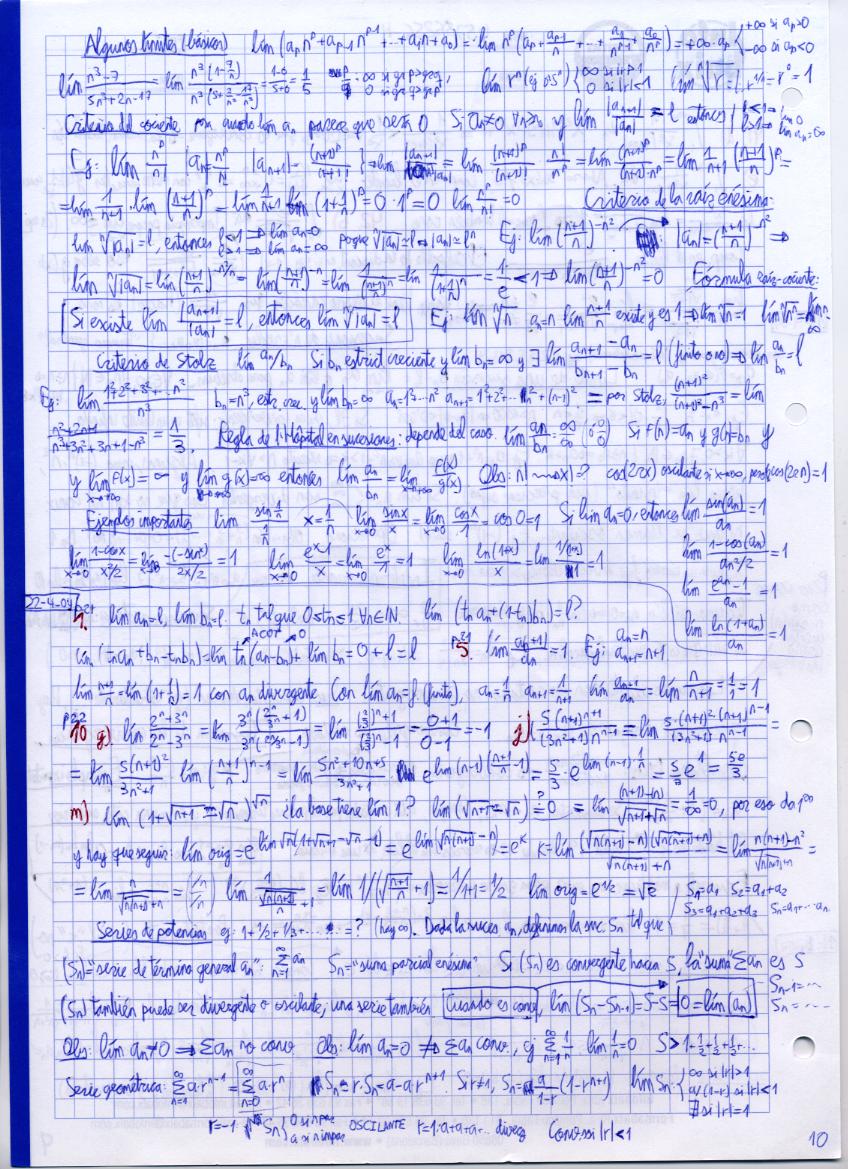 Algunos límites (básicos) lím (aₚnᵖ+aₚ₋₁nᵖ⁻¹+...+a₁n+a₀) = lím nᵖ(aₚ+aₚ₋₁/n+...+a₁/nᵖ⁻¹+a₀/nᵖ) = +∞·aₚ { +∞ si aₚ>0 -∞ si aₚ<0
lím (n³-7)/(5n³+2n-17) = lím n³(1-7/n³)/n³(5+2/n²-17/n³) = (1-0)/(5+0) = 1/5 lím rⁿ (ej 0'5ⁿ) { ∞ si |r|>1 0 si |r|<1 lím ⁿ√r = lím r^(1/n) = r⁰ = 1
Criterio del cociente para cuando lím aₙ parece que será 0. Si aₙ≠0 ∀n≥n₀ y lím |aₙ₊₁|/|aₙ| = l entonces { l<1 ⇒ lím 0 l>1 ⇒ lím aₙ=∞
Ej: lím nᵖ/n! |aₙ|=nᵖ/n! |aₙ₊₁|=(n+1)ᵖ/(n+1)! } ⇒ lím |aₙ₊₁|/|aₙ| = lím (n+1)ᵖ/(n+1)! · n!/nᵖ = lím (n+1)ᵖ/(n+1)·nᵖ = lím 1/(n+1) ((n+1)/n)ᵖ =
= lím 1/(n+1) · lím ((n+1)/n)ᵖ = lím 1/(n+1) · lím (1+1/n)ᵖ = 0·1ᵖ = 0 lím nᵖ/n! = 0 Criterio de la raíz enésima:
lím ⁿ√|aₙ| = l, entonces l<1 ⇒ lím aₙ=0 l>1 ⇒ lím aₙ=∞ porque ⁿ√|aₙ| ≃ l ⇔ |aₙ| ≃ lⁿ. Ej: lím ((n+1)/n)^(-n²) |aₙ| = ((n+1)/n)^(-n²) ⇒
lím ⁿ√|aₙ| = lím ((n+1)/n)^(-n²/n) = lím ((n+1)/n)^(-n) = lím 1/((n+1)/n)ⁿ = lím 1/(1+1/n)ⁿ = 1/e < 1 ⇒ lím ((n+1)/n)^(-n²) = 0 Fórmula raíz-cociente:
Si existe lím |aₙ₊₁|/|aₙ| = l, entonces lím ⁿ√|aₙ| = l Ej: lím ⁿ√n aₙ=n lím (n+1)/n existe y es 1 ⇒ lím ⁿ√n = 1
Criterio de Stolz lím aₙ/bₙ Si bₙ estrict creciente y lím bₙ = ∞ y ∃ lím (aₙ₊₁-aₙ)/(bₙ₊₁-bₙ) = l (finito o no) ⇒ lím aₙ/bₙ = l
Ej: lím (1²+2²+3²+...n²)/n³ bₙ=n³, estr. crec. y lím bₙ=∞ aₙ=1²+...n² aₙ₊₁=1²+2²+...n²+(n+1)² = por Stolz, (n+1)²/((n+1)³-n³) = lím
(n²+2n+1)/(n³+3n²+3n+1-n³) = 1/3. Regla de l'Hôpital en sucesiones: depende del caso. lím aₙ/bₙ = ∞/∞ (0/0) Si f(n)=aₙ y g(n)=bₙ y
y lím f(x) = ∞ y lím g(x)=∞ entonces lím aₙ/bₙ = lím f(x)/g(x) Obs: n! ⟿ x! = ? cos(2πx) oscilante si x→∞, pero cos(2πn)=1
Ejemplos importantes lím sin(1/n)/(1/n) x=1/n lím sinx/x = lím cosx/1 = cos 0=1 Si lím aₙ=0, entonces lím sin(aₙ)/aₙ = 1
lím (1-cosx)/(x²/2) = lím -(-sinx)/(2x/2) = 1 lím (eˣ-1)/x = lím eˣ/1 = 1 lím ln(1+x)/x = lím (1/(1+x))/1 = 1 lím (1-cos(aₙ))/(aₙ²/2) = 1
lím (e^aₙ-1)/aₙ = 1
lím ln(1+aₙ)/aₙ = 1
22-4-04 p221
4. lím aₙ=l, lím bₙ=l. tₙ tal que 0≤tₙ≤1 ∀n∈ℕ. lím (tₙaₙ+(1-tₙ)bₙ)=l?
lím (tₙaₙ+bₙ-tₙbₙ) = lím tₙ(aₙ-bₙ) + lím bₙ = 0+l = l 5. lím aₙ₊₁/aₙ = 1. Ej: aₙ=n aₙ₊₁=n+1
lím (n+1)/n = lím (1+1/n) = 1 con aₙ divergente. Con lím aₙ=l (finito), aₙ=1/n aₙ₊₁=1/(n+1) lím aₙ₊₁/aₙ = lím n/(n+1) = 1/1 = 1
p222
10 g) lím (2ⁿ+3ⁿ)/(2ⁿ-3ⁿ) = lím 3ⁿ(2ⁿ/3ⁿ+1)/3ⁿ(2ⁿ/3ⁿ-1) = lím ((2/3)ⁿ+1)/((2/3)ⁿ-1) = (0+1)/(0-1) = -1 j) 5(n+1)ⁿ⁺¹/(3n²+1)nⁿ⁻¹ = lím 5·(n+1)²·(n+1)ⁿ⁻¹/(3n²+1)nⁿ⁻¹ =
= lím 5(n+1)²/(3n²+1) · lím ((n+1)/n)ⁿ⁻¹ = lím (5n²+10n+5)/(3n²+1) e^(lím (n-1)((n+1)/n-1)) = 5/3·e^(lím (n-1)·1/n) = 5/3 e¹ = 5e/3.
m) lím (1+√(n+1)-√n)^√n ¿la base tiene lím 1? lím (√(n+1)-√n) ?= 0 = lím ((n+1)-n)/(√(n+1)+√n) = 1/∞ = 0, por eso da 1^∞
y hay que seguir: lím orig = e^(lím √n(1+√(n+1)-√n-1)) = e^(lím(√(n(n+1))-n)) = eᵏ K = lím (√(n(n+1))-n)(√(n(n+1))+n)/(√(n(n+1))+n) = lím (n(n+1)-n²)/(√(n(n+1))+n) =
= lím n/(√(n(n+1))+n) = (÷n/÷n) lím 1/(√(n(n+1))/n+1) = lím 1/(√((n+1)/n)+1) = 1/(1+1) = 1/2 lím orig = e^(1/2) = √e
S₁=a₁ S₂=a₁+a₂
S₃=a₁+a₂+a₃ Sₙ=a₁+...aₙ
Series de potencias ej: 1+1/2+1/3+...=? (hay ∞). Dada la suces aₙ, definimos la suc. Sₙ tal que
(Sₙ)="serie de término general aₙ": Σ aₙ Sₙ="suma parcial enésima" Si (Sₙ) es convergente hacia S, la "suma" Σaₙ es S
(Sₙ) también puede ser divergente o oscilante; una serie también Cuando es conv, lím (Sₙ-Sₙ₋₁)=S-S=0=lím(aₙ)
Sₙ₋₁=...
Sₙ=...
Obs: lím aₙ≠0 ⇒ Σaₙ no conv. Obs: lím aₙ=0 ⇏ Σaₙ conv., ej Σ 1/n lím 1/n=0 S>1+1/2+1/2+1/2+...
Serie geométrica: Σ a·rⁿ⁻¹ = Σ a·rⁿ Sₙ-r·Sₙ=a-a·rⁿ⁺¹ Si r≠1, Sₙ=a/(1-r) (1-rⁿ⁺¹) lím Sₙ: { ∞ si |r|>1 a/(1-r) si |r|<1 ∄ si |r|=1
r=-1 Sₙ { 0 si n par a si n impar OSCILANTE r=1: a+a+a... diverg Conv. si |r|<1
10